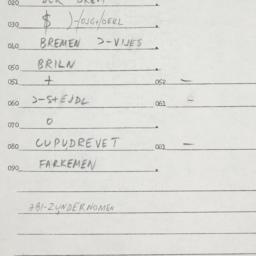 020
030 $ )-/OJGI/OERL
040 BREMEN >-VIJES
050 BRILN
051 + 052 -
060 >-S+EJDL 061 -
070 O
080 CUPUDREVET 081 -
090 FARKEMEN
781-ZYNDERNOMEN